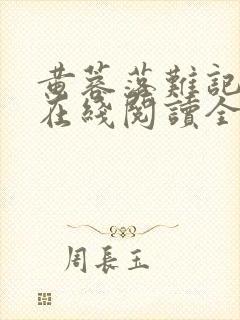 黄蓉落難記
在綫閱讀全
周長玉